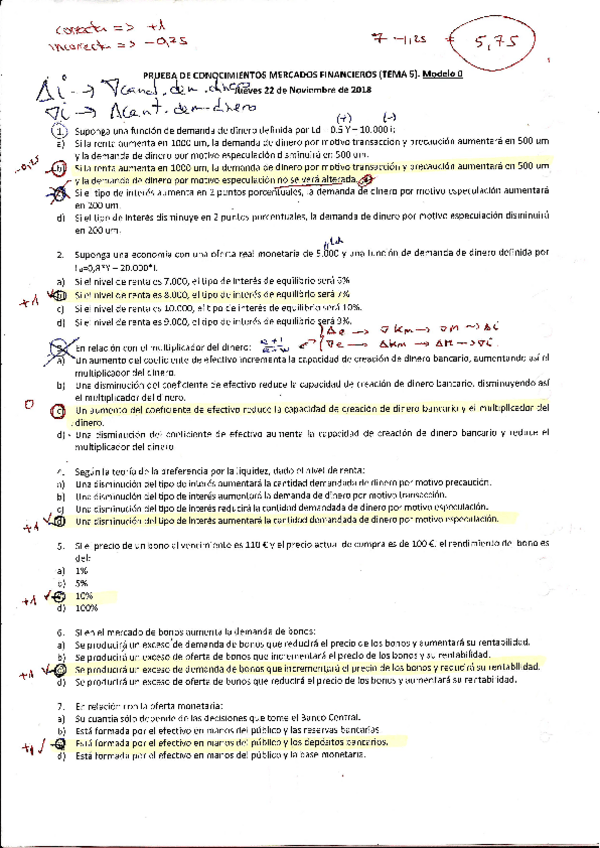 correcta => +1
incorrecta => -0,25
7 -1,25 = 5,75
PRUEBA DE CONOCIMIENTOS MERCADOS FINANCIEROS (TEMA 5). Modelo 0
Jueves 22 de Noviembre de 2018
Δi → ∇cant. dem. dinero
∇i → Δcant. dem. dinero
(+) (-)
1. Suponga una función de demanda de dinero definida por Ld 0.5 Y – 10.000 i:
a) Si la renta aumenta en 1000 um, la demanda de dinero por motivo transacción y precaución aumentará en 500 um
y la demanda de dinero por motivo especulación disminuirá en 500 um.
-0,25
b) Si la renta aumenta en 1000 um, la demanda de dinero por motivo transacción y precaución aumentará en 500 um
y la demanda de dinero por motivo especulación no se verá alterada.
c) Si el tipo de interés aumenta en 2 puntos porcentuales, la demanda de dinero por motivo especulación aumentará
en 200 um.
d) Si el tipo de interés disminuye en 2 puntos porcentuales, la demanda de dinero por motivo especulación disminuirá
en 200 um.
2. Suponga una economía con una oferta real monetaria de 5.000 y una función de demanda de dinero definida por
a) Si el nivel de renta es 7.000, el tipo de interés de equilibrio será 6%
+1
b) Si el nivel de renta es 8.000, el tipo de interés de equilibrio será 7%
c) Si el nivel de renta es 10.000, el tipo de interés de equilibrio será 10%.
d) Si el nivel de renta es 9.000, el tipo de interés de equilibrio será 9%.
Δe → ∇km → ∇M → Δi
3. En relación con el multiplicador del dinero:
∇e → Δkm → ΔM → ∇i
a) Un aumento del coeficiente de efectivo incrementa la capacidad de creación de dinero bancario, aumentando así el
multiplicador del dinero.
b) Una disminución del coeficiente de efectivo reduce la capacidad de creación de dinero bancario, disminuyendo así
el multiplicador del dinero.
0
c) Un aumento del coeficiente de efectivo reduce la capacidad de creación de dinero bancario y el multiplicador del
dinero.
d) Una disminución del coeficiente de efectivo aumenta la capacidad de creación de dinero bancario y reduce el
multiplicador del dinero
4. Según la teoría de la preferencia por la liquidez, dado el nivel de renta:
a) Una disminución del tipo de interés aumentará la cantidad demandada de dinero por motivo precaución.
b) Una disminución del tipo de interés aumentará la demanda de dinero por motivo transacción.
c) Una disminución del tipo de interés reducirá la cantidad demandada de dinero por motivo especulación.
+1
d) Una disminución del tipo de interés aumentará la cantidad demandada de dinero por motivo especulación.
5. Si el precio de un bono al vencimiento es 110 € y el precio actual de compra es de 100 €, el rendimiento del bono es
del:
a) 1%
b) 5%
+1
c) 10%
d) 100%
6. Si en el mercado de bonos aumenta la demanda de bonos:
a) Se producirá un exceso de demanda de bonos que reducirá el precio de los bonos y aumentará su rentabilidad.
b) Se producirá un exceso de oferta de bonos que incrementará el precio de los bonos y su rentabilidad.
+1
c) Se producirá un exceso de demanda de bonos que incrementará el precio de los bonos y reducirá su rentabilidad.
d) Se producirá un exceso de oferta de bonos que reducirá el precio de los bonos y aumentará su rentabilidad.
7. En relación con la oferta monetaria:
a) Su cuantía sólo depende de las decisiones que tome el Banco Central.
b) Está formada por el efectivo en manos del público y las reservas bancarias
+1
c) Está formada por el efectivo en manos del público y los depósitos bancarios.
d) Está formada por el efectivo en manos del público y la base monetaria.